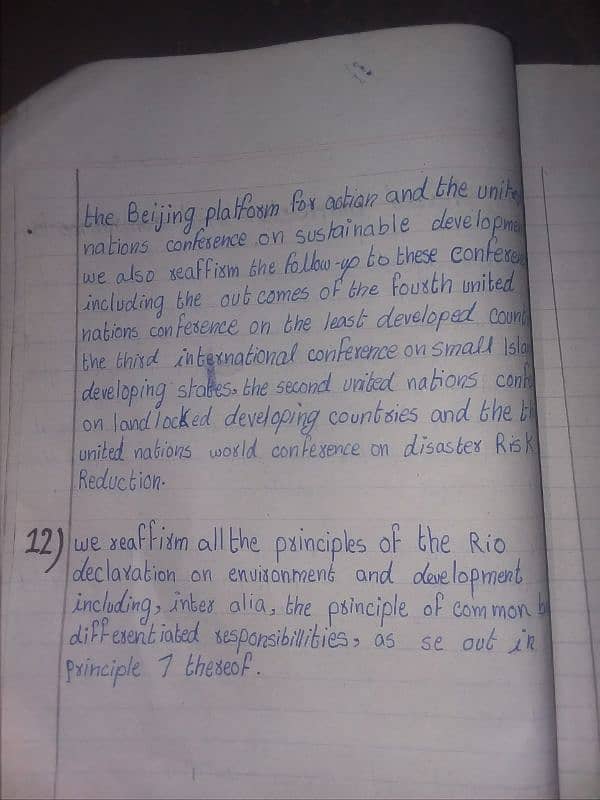 the Beijing platform for action and the unite
nations conference on sustainable developme
we also reaffirm the follow-up to these confere
including the out comes of the fourth united
nations conference on the least developed Count
the third international conference on small Isla
developing states, the second united nations conf
on landlocked developing countries and the th
united nations world conference on disaster Risk
Reduction.
12) we reaffirm all the principles of the Rio
declaration on enuironment and development
including, inter alia, the principle of common b
differentiated responsibillities, as se out in
Principle 7 thereof.